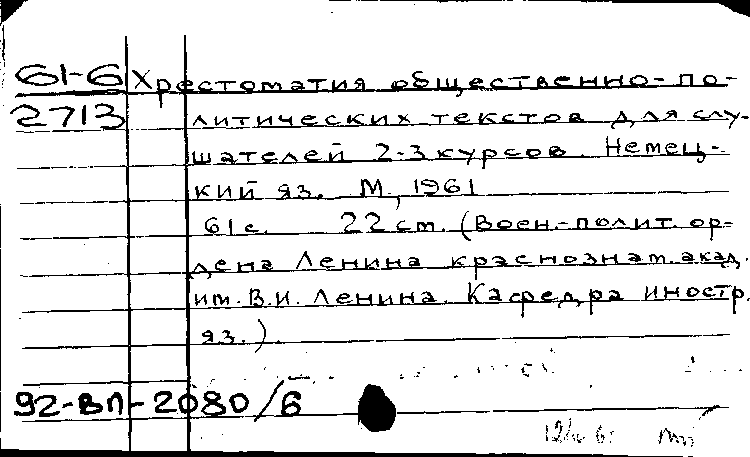 61-6 Хрестоматия общественно-по-
2713 литических текстов для слу-
шателей 2-3 курсов. Немец-
кий яз. М, 1961
61 с. 22 см. (Воен.-полит. ор-
дена Ленина краснознам. акад.
им. В.И. Ленина. Кафедра иностр.
яз.).
92-ВП-2080/6